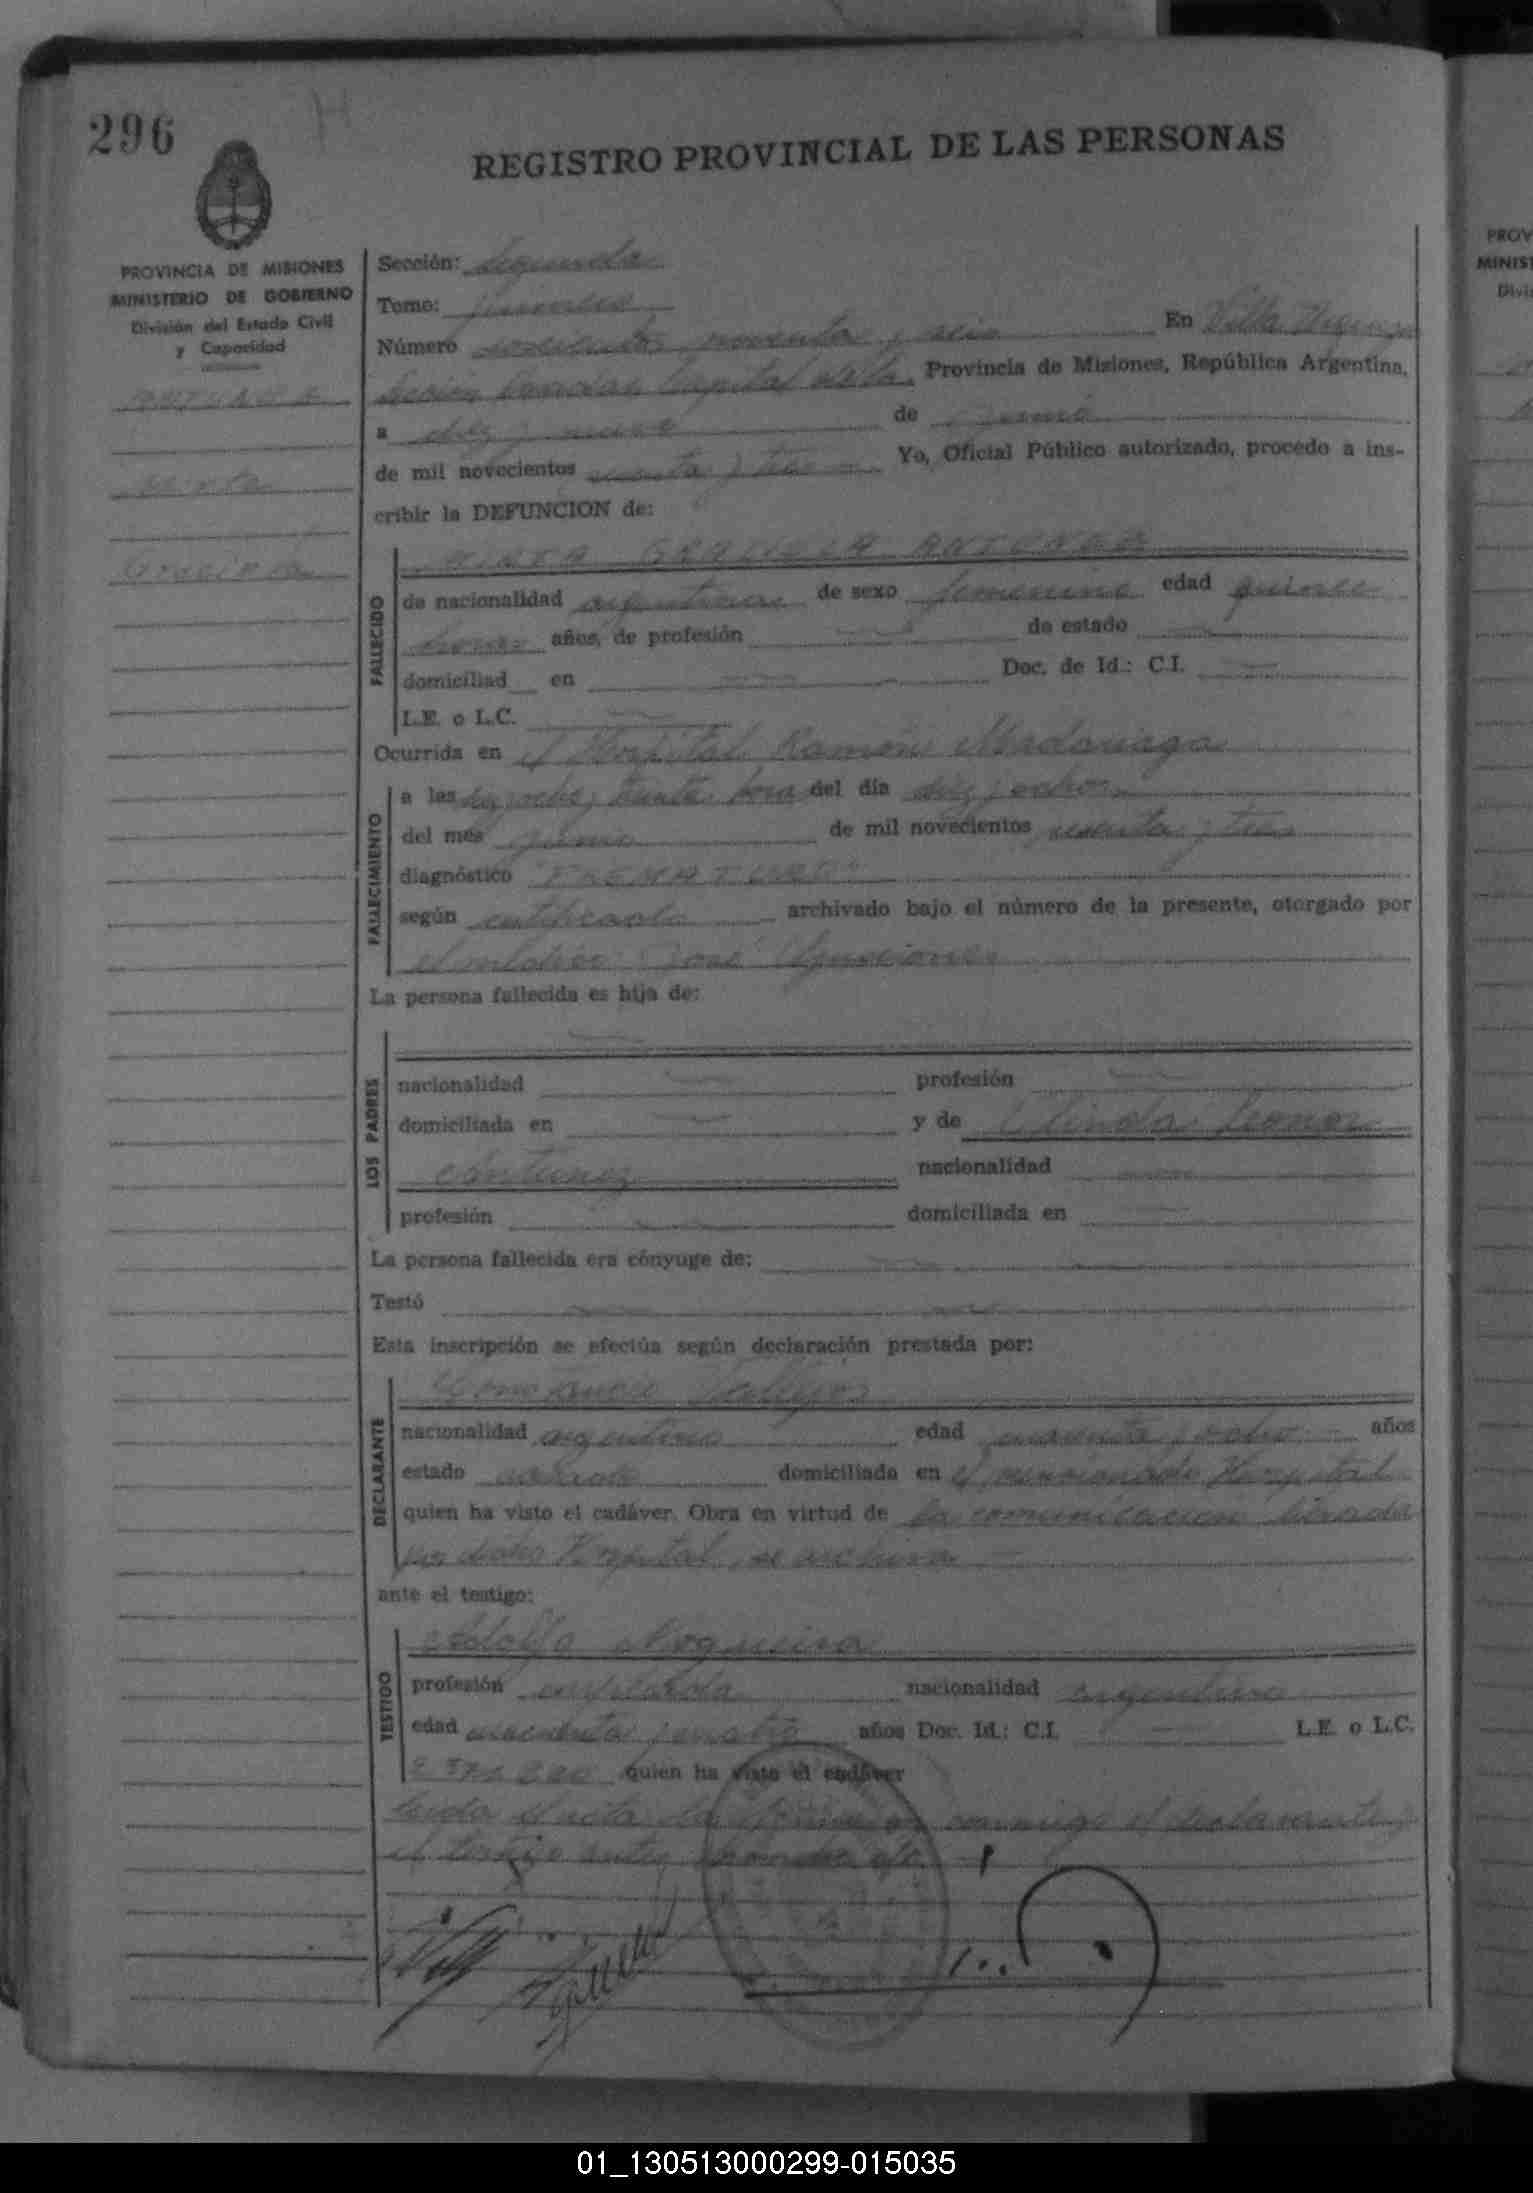 296
REGISTRO PROVINCIAL DE LAS PERSONAS
PROVINCIA DE MISIONES
MINISTERIO DE GOBIERNO
División del Estado Civil
y Capacidad
Mirta
Graciela
Sección: Segunda
Tomo: Primero
Número doscientos noventa y seis En Villa Urquiza
Sección Capital de la, Provincia de Misiones, República Argentina,
a diez y nueve de Junio
de mil novecientos sesenta y tres Yo, Oficial Público autorizado, procedo a ins-
cribir la DEFUNCION de:
FALLECIDO
MIRTA GRACIELA ANTUNEZ
de nacionalidad argentina de sexo femenino edad quince
horas años, de profesión — de estado —
domiciliad en — Doc. de Id.: C.I. —
L.E. o L.C. —
Ocurrida en el Hospital Ramón Madariaga
FALLECIMIENTO
a las diez y ocho y treinta hora del día diez y ocho
del mes junio de mil novecientos sesenta y tres
diagnóstico "PREMATURO"
según certificado archivado bajo el número de la presente, otorgado por
el médico José
La persona fallecida es hija de:
LOS PADRES
—
nacionalidad — profesión —
domiciliada en — y de Leonor
Antunez nacionalidad —
profesión — domiciliada en —
La persona fallecida era cónyuge de: —
Testó —
Esta inscripción se efectúa según declaración prestada por:
DECLARANTE
Vallejos
nacionalidad argentino edad cuarenta y ocho años
estado casado domiciliada en el mencionado Hospital
quien ha visto el cadáver. Obra en virtud de la comunicación librada
por dicho Hospital, se archiva —
ante el testigo:
TESTIGO
Adolfo Nogueira
profesión empleado nacionalidad argentino
edad cuarenta y cuatro años Doc. Id.: C.I. — L.E. o L.C.
quien ha visto el cadáver
Leida el acta la firman conmigo el declarante y
el testigo antes
PROV
MINIST
Divis
01_130513000299-015035